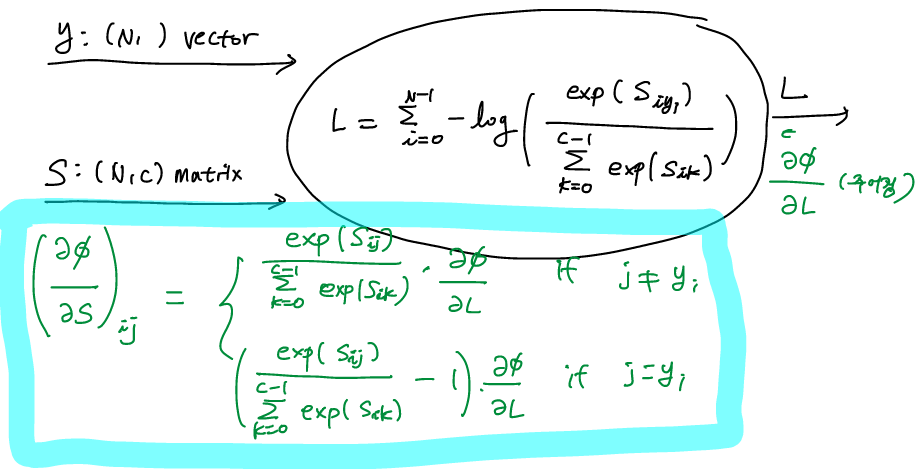 y : (N, ) vector
L = \sum_{i=0}^{N-1} -log( \frac{exp(S_{iy_i})}{\sum_{k=0}^{C-1} exp(S_{ik})} )
L
S : (N,C) matrix
\frac{∂φ}{∂L} (주어짐)
(\frac{∂φ}{∂S})_{ij} = { \frac{exp(S_{ij})}{\sum_{k=0}^{C-1} exp(S_{ik})} · \frac{∂φ}{∂L} if j ≠ y_i
(\frac{exp(S_{ij})}{\sum_{k=0}^{C-1} exp(S_{ik})} - 1) · \frac{∂φ}{∂L} if j = y_i